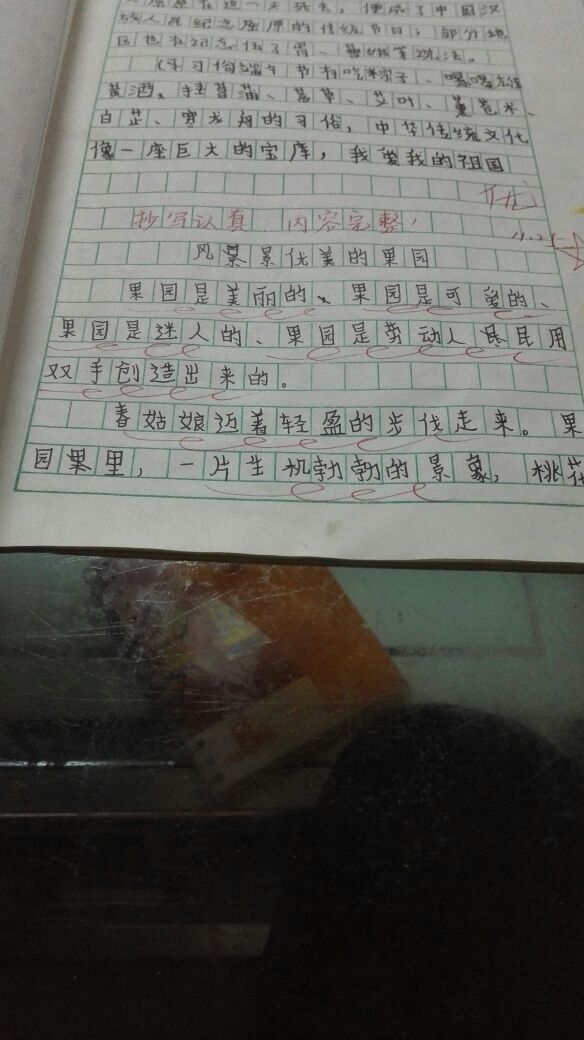 屈原在这一天死去，便成了中国汉
族人民纪念屈原的传统节日；部分地
区也有纪念伍子胥、曹娥等说法。
习俗端午节有吃粽子、喝雄
黄酒、挂菖蒲、艾叶、薰苍术、
白芷、赛龙舟的习俗，中华传统文化
像一座巨大的宝库，我爱我的祖国
优
抄写认真 内容完整！
11.25
风景景优美的果园
果园是美丽的、果园是可爱的、
果园是迷人的、果园是劳动人民民用
双手创造出来的。
春姑娘迈着轻盈的步伐走来。果
园果里，一片生机勃勃的景象，桃花